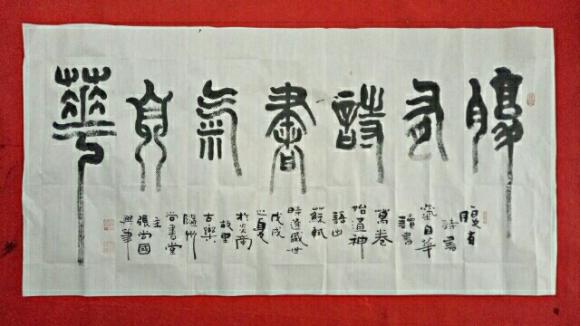 腹有詩書氣自華
腹有
詩書
氣自華
讀書
萬卷
始通神
語出
蘇軾
時逢盛世
戊戌
之夏
於炎商
故里
尚書堂
主
張尚國